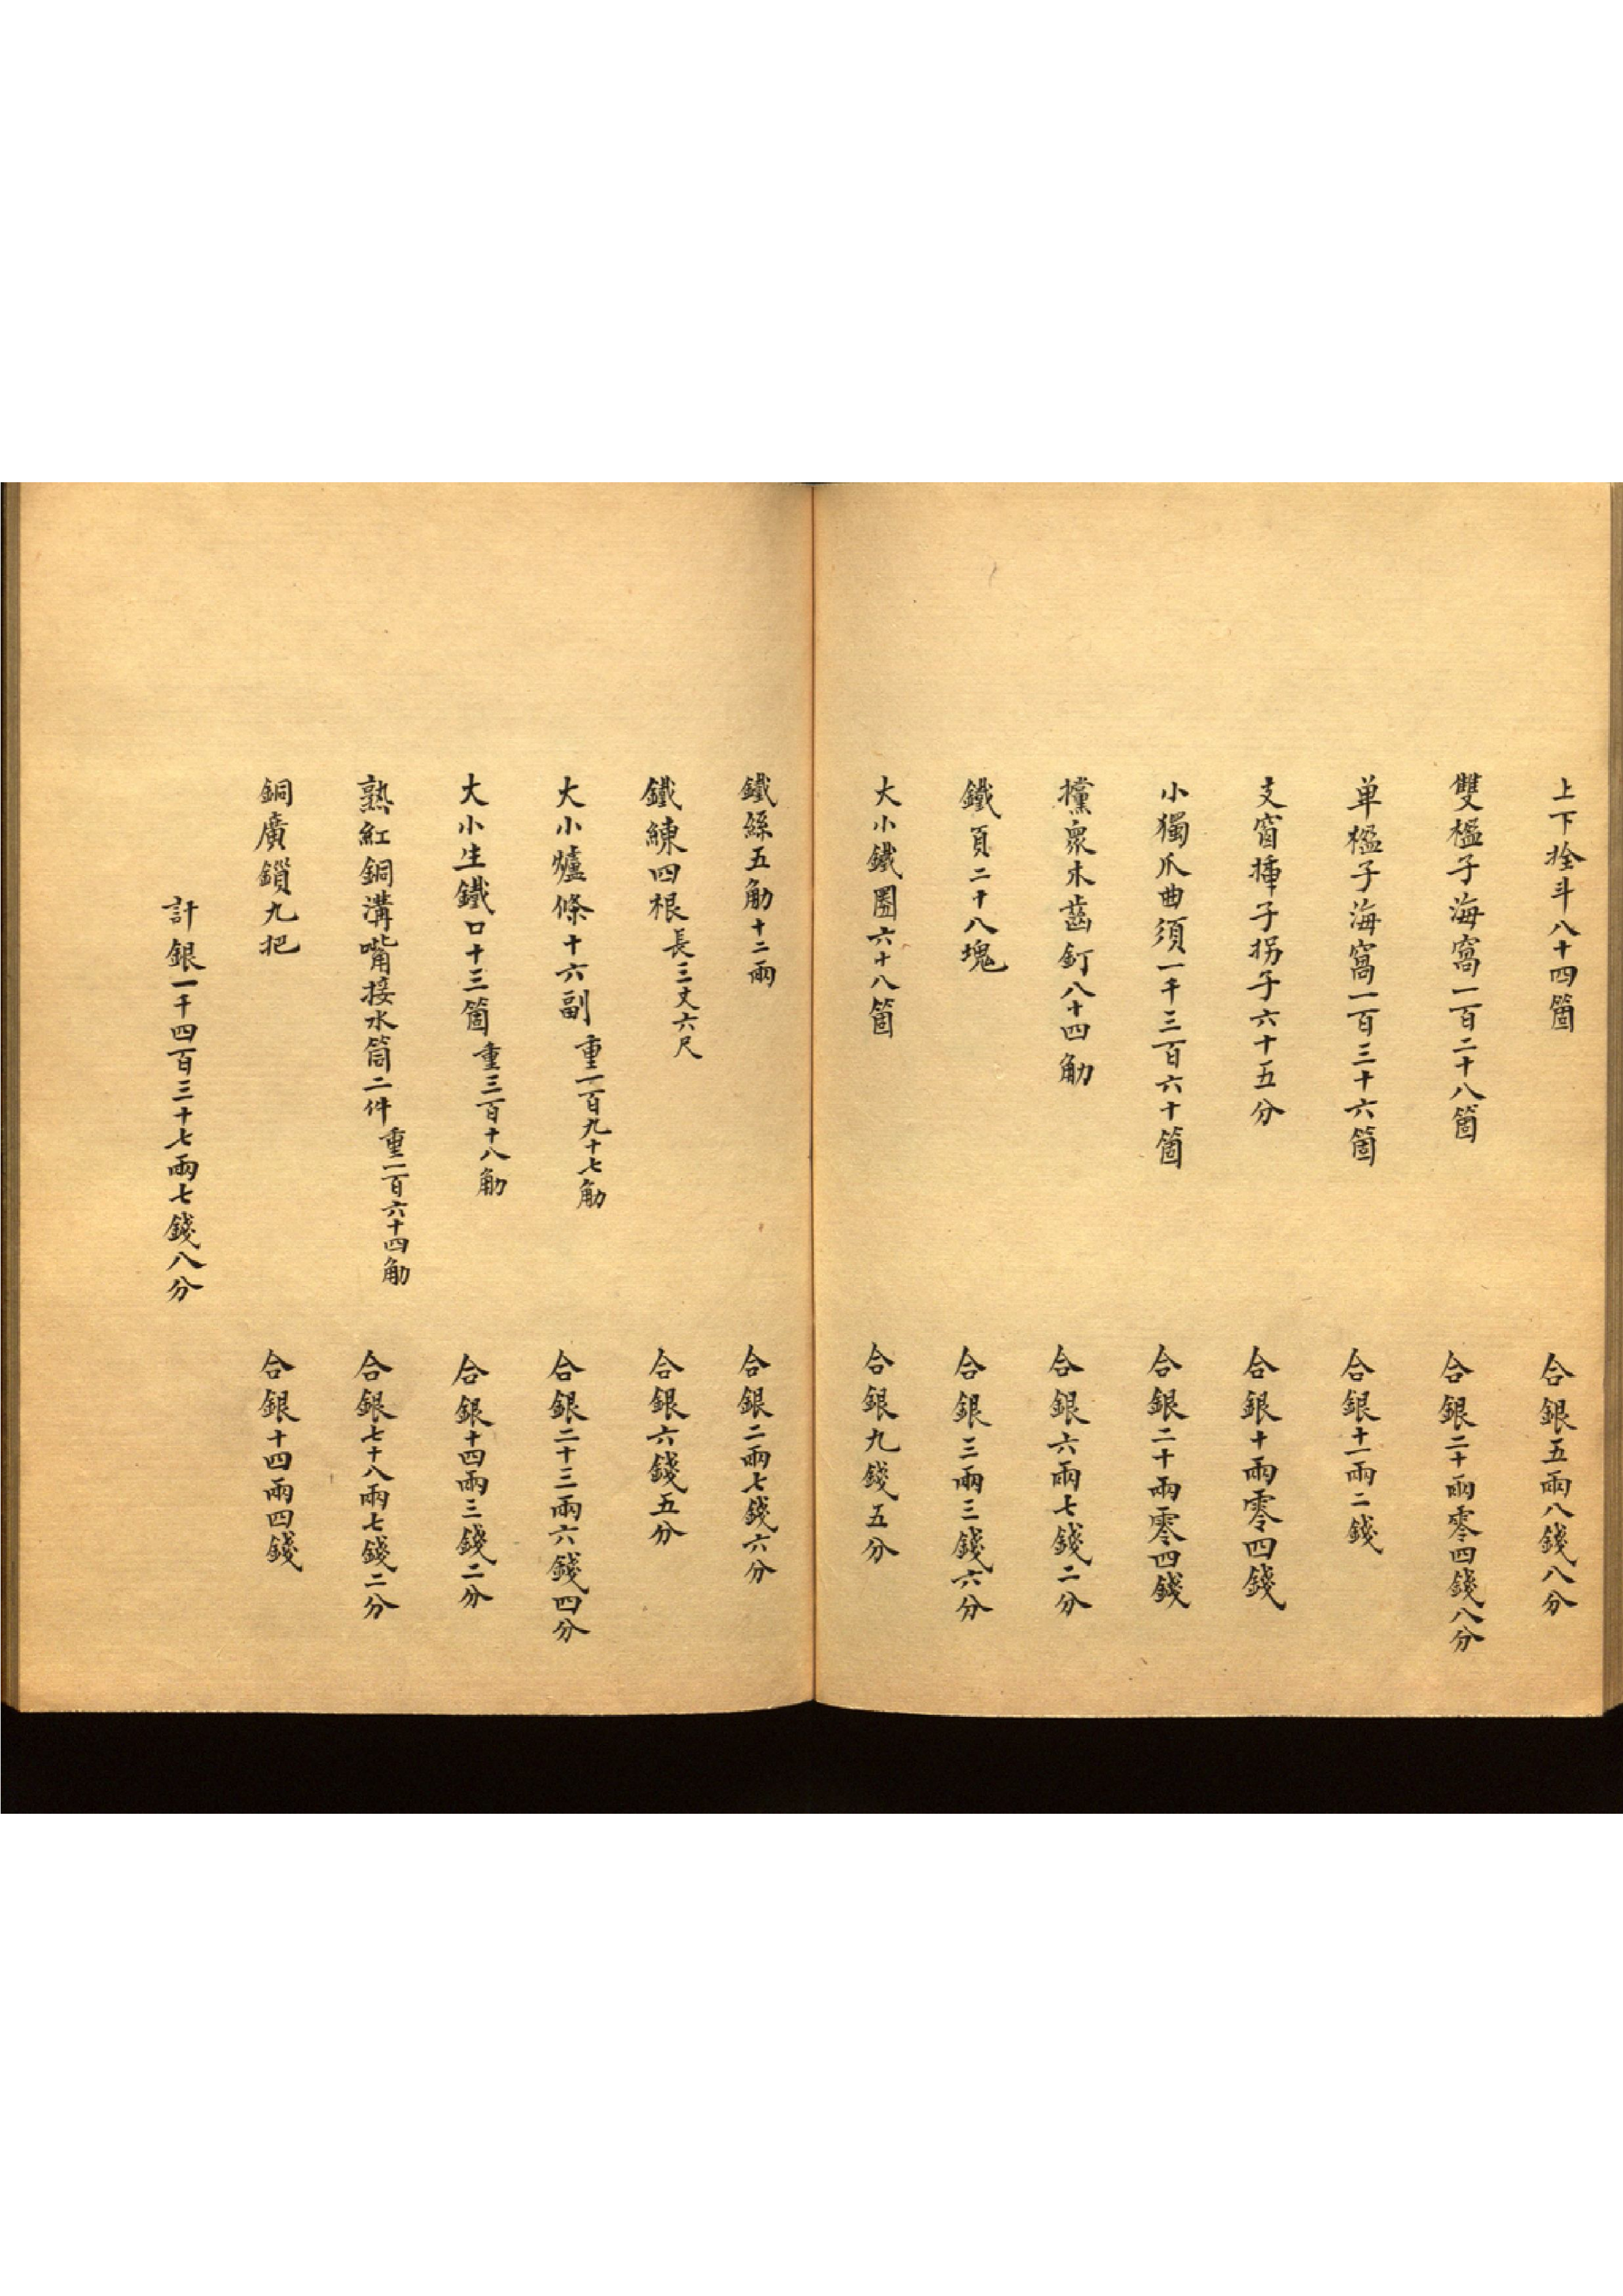 上下拴斗八十四箇　合銀五兩八錢八分
雙楹子海窩一百二十八箇　合銀二十兩零四錢八分
单楹子海窩一百三十六箇　合銀十一兩二錢
支窗挿子拐子六十五分　合銀十兩零四錢
小獨爪曲須一千三百六十箇　合銀二十兩零四錢
攩衆木齒釘八十四觔　合銀六兩七錢二分
鐵頁二十八塊　合銀三兩三錢六分
大小鐵圏六十八箇　合銀九錢五分
鐵絲五觔十二兩　合銀二兩七錢六分
鐵練四根長三丈六尺　合銀六錢五分
大小爐條十六副重一百九十七觔　合銀二十三兩六錢四分
大小生鐵口十三箇重三百十八觔　合銀十四兩三錢二分
熟紅銅溝嘴接水筒二件重一百六十四觔　合銀七十八兩七錢二分
銅廣鎖九把　合銀十四兩四錢
計銀一千四百三十七兩七錢八分